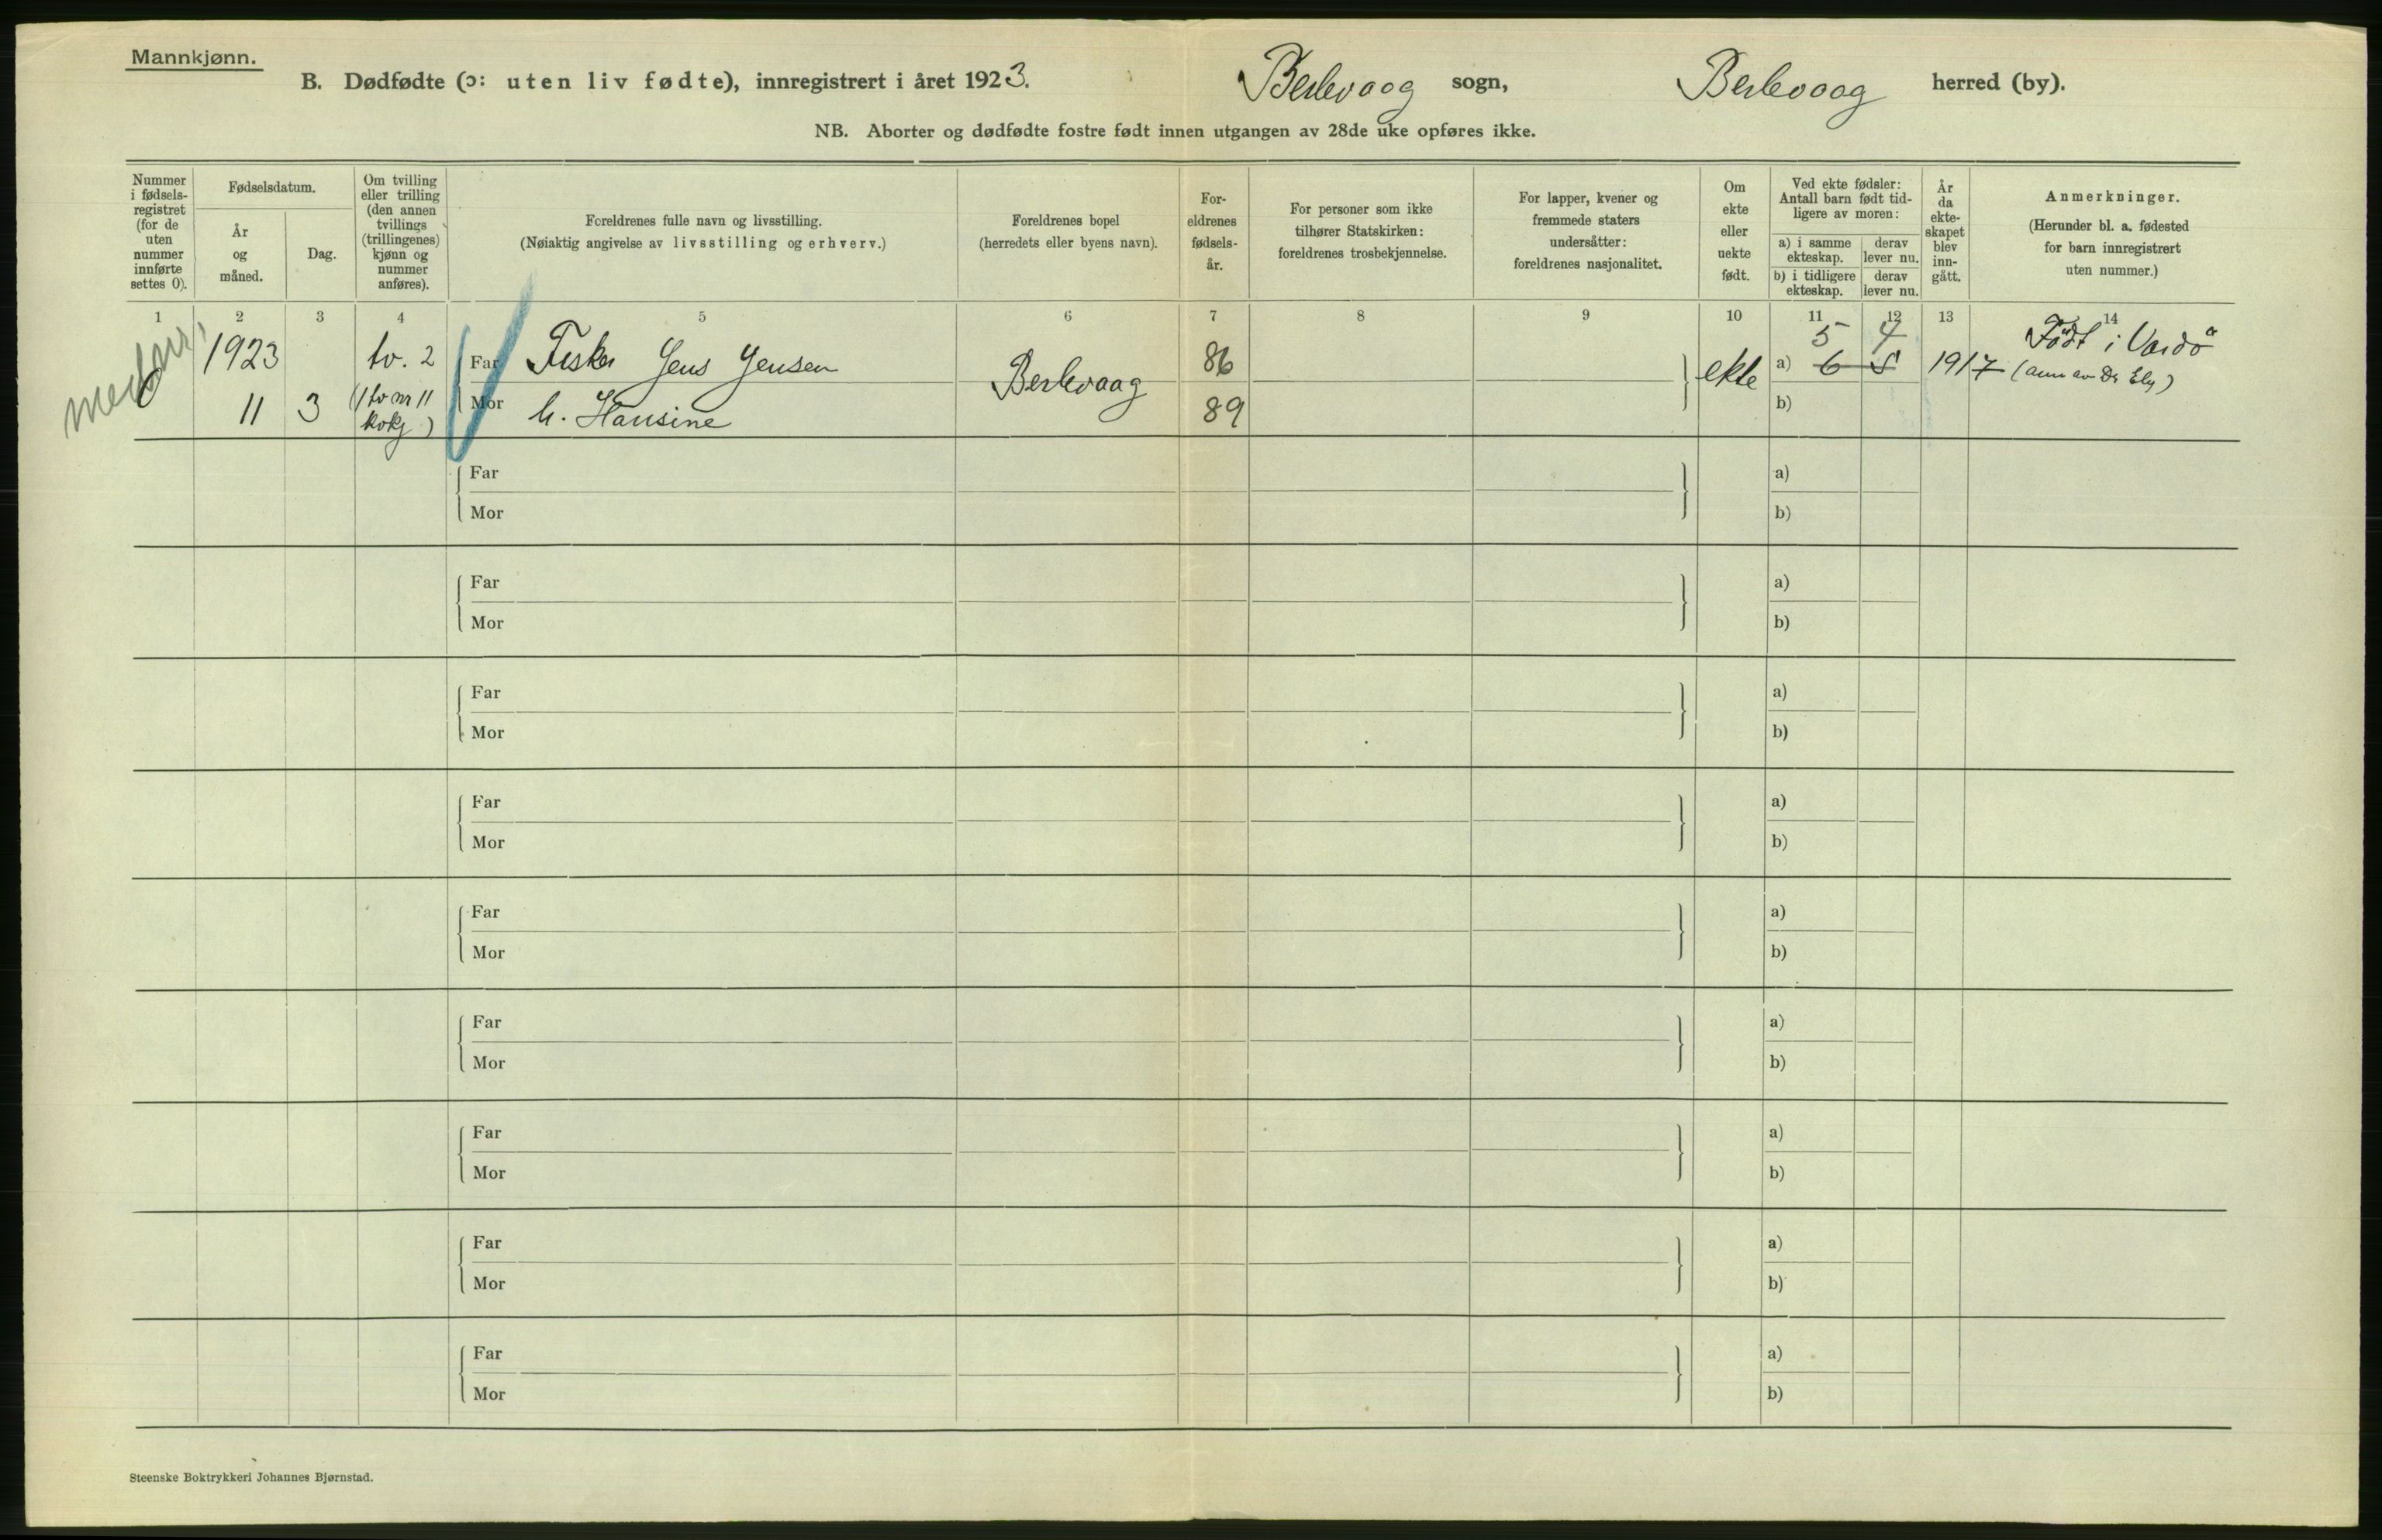 Mannkjønn.
B. Dødfødte (ɔ: uten liv fødte), innregistrert i året 1923. Berlevaag sogn, Berlevaag herred (by).
NB. Aborter og dødfødte fostre født innen utgangen av 28de uke opføres ikke.
Nummer i fødsels-registret (for de uten nummer innførte settes 0).
Fødselsdatum.
År og måned.
Dag.
Om tvilling eller trilling (den annen tvillings (trillingenes) kjønn og nummer anføres).
Foreldrenes fulle navn og livsstilling.
(Nøiaktig angivelse av livsstilling og erhverv.)
Foreldrenes bopel
(herredets eller byens navn).
For-eldrenes fødsels-år.
For personer som ikke tilhører Statskirken: foreldrenes trosbekjennelse.
For lapper, kvener og fremmede staters undersåtter: foreldrenes nasjonalitet.
Om ekte eller uekte født.
Ved ekte fødsler: Antall barn født tid-ligere av moren:
a) i samme ekteskap.
derav lever nu.
b) i tidligere ekteskap.
derav lever nu.
År da ekte-skapet blev inn-gått.
Anmerkninger.
(Herunder bl. a. fødested for barn innregistrert uten nummer.)
1 2 3 4 5 6 7 8 9 10 11 12 13 14
0 1923 tv. 2 Far Fisker Jens Jensen Berlevaag 86 ekte 5 4 a) 6 5 1917 Født i Vardø
11 3 (1 tv nr 11 kvkj) Mor h. Hansine 89 b)
Far a)
Mor b)
Far a)
Mor b)
Far a)
Mor b)
Far a)
Mor b)
Far a)
Mor b)
Far a)
Mor b)
Far a)
Mor b)
Far a)
Mor b)
Far a)
Mor b)
Steenske Boktrykkeri Johannes Bjørnstad.